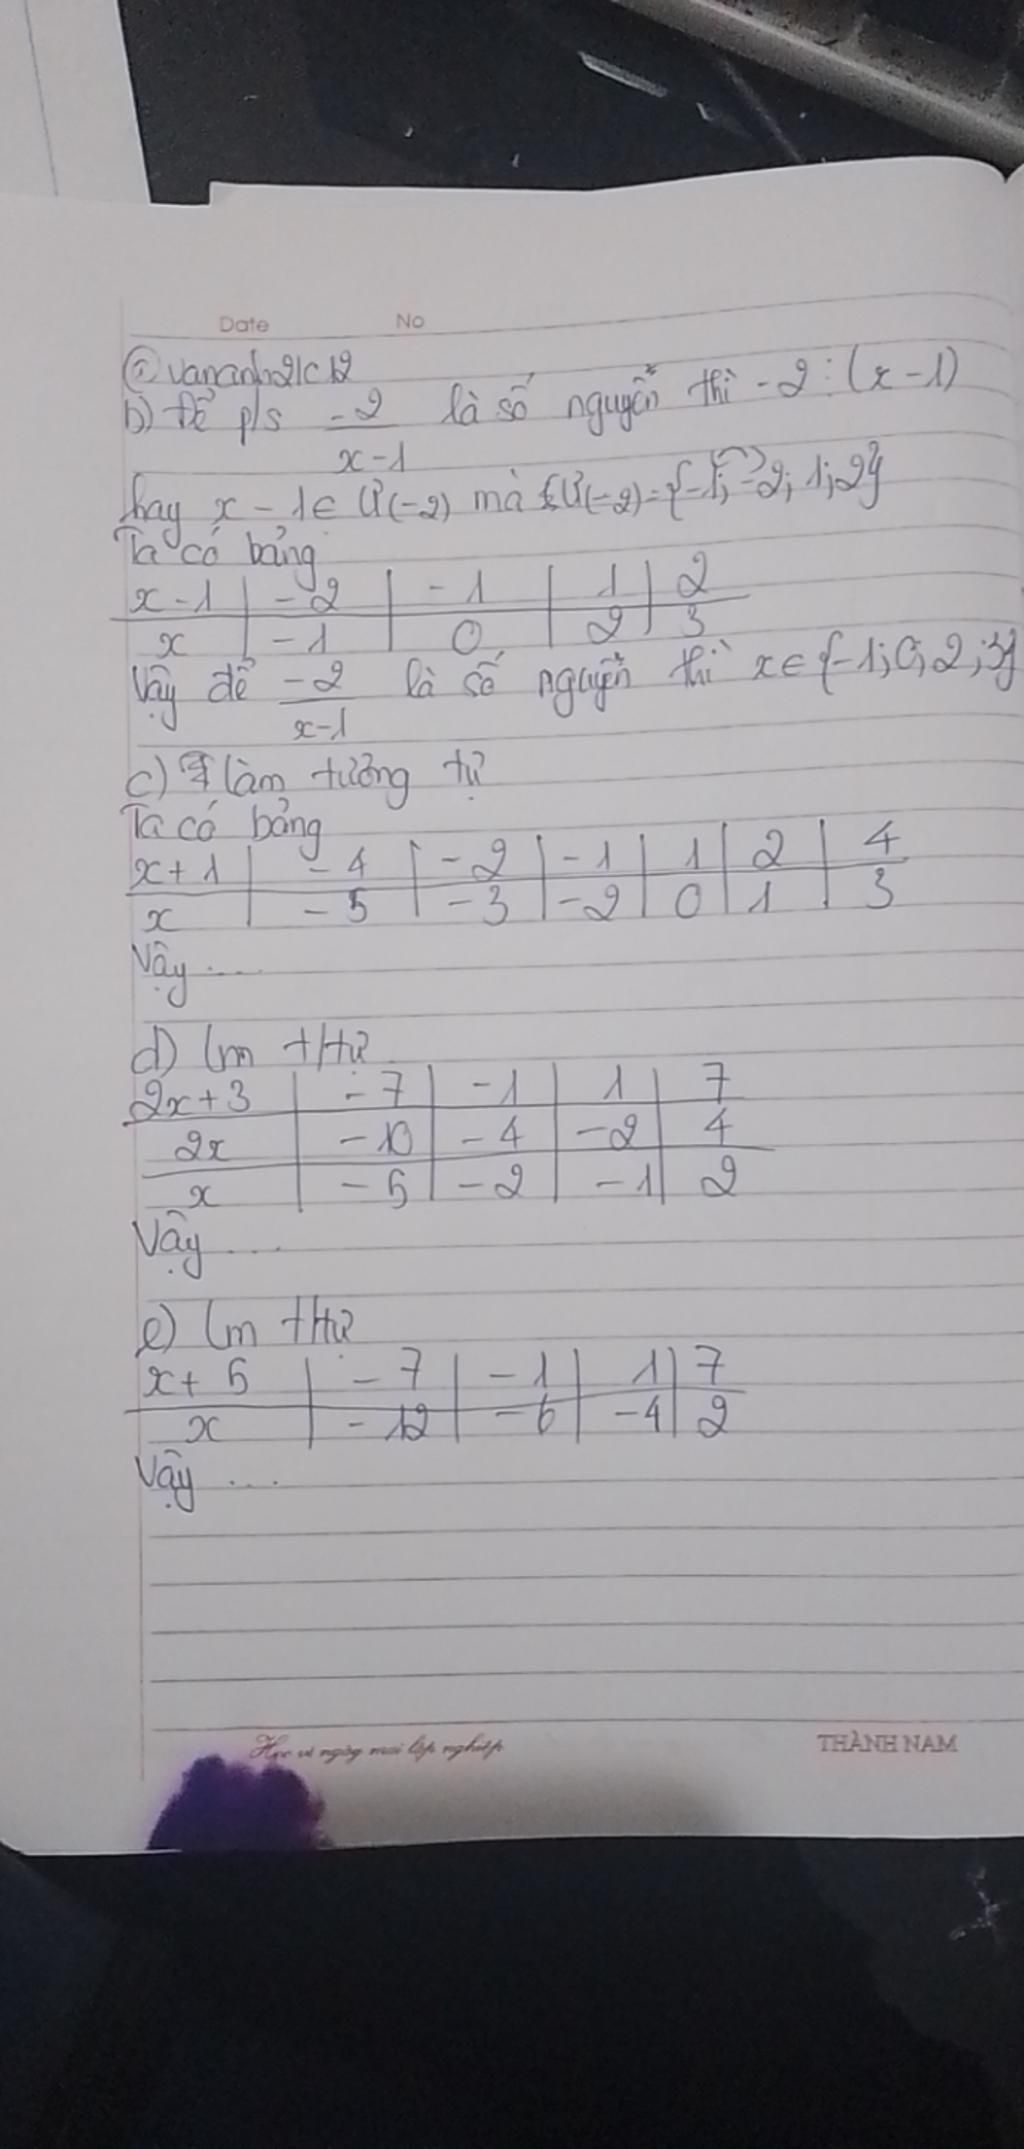 Date No
@vananh21c12
b) Để p/s -2/x-1 là số nguyên thì -2 ⋮ (x-1)
hay x - 1 ∈ Ư(-2) mà Ư(-2) = {-1; -2; 1; 2}
Ta có bảng
x-1 | -2 | -1 | 1 | 2
x | -1 | 0 | 2 | 3
Vậy để -2/x-1 là số nguyên thì x ∈ {-1; 0; 2; 3}
c) làm tương tự
Ta có bảng
x+1 | -4 | -2 | -1 | 1 | 2 | 4
x | -5 | -3 | -2 | 0 | 1 | 3
Vậy ....
d) lm ttự
2x+3 | -7 | -1 | 1 | 7
2x | -10 | -4 | -2 | 4
x | -5 | -2 | -1 | 2
Vậy ....
e) lm ttự
x+5 | -7 | -1 | 1 | 7
x | -12 | -6 | -4 | 2
Vậy ....
Học vì ngày mai lập nghiệp THÀNH NAM